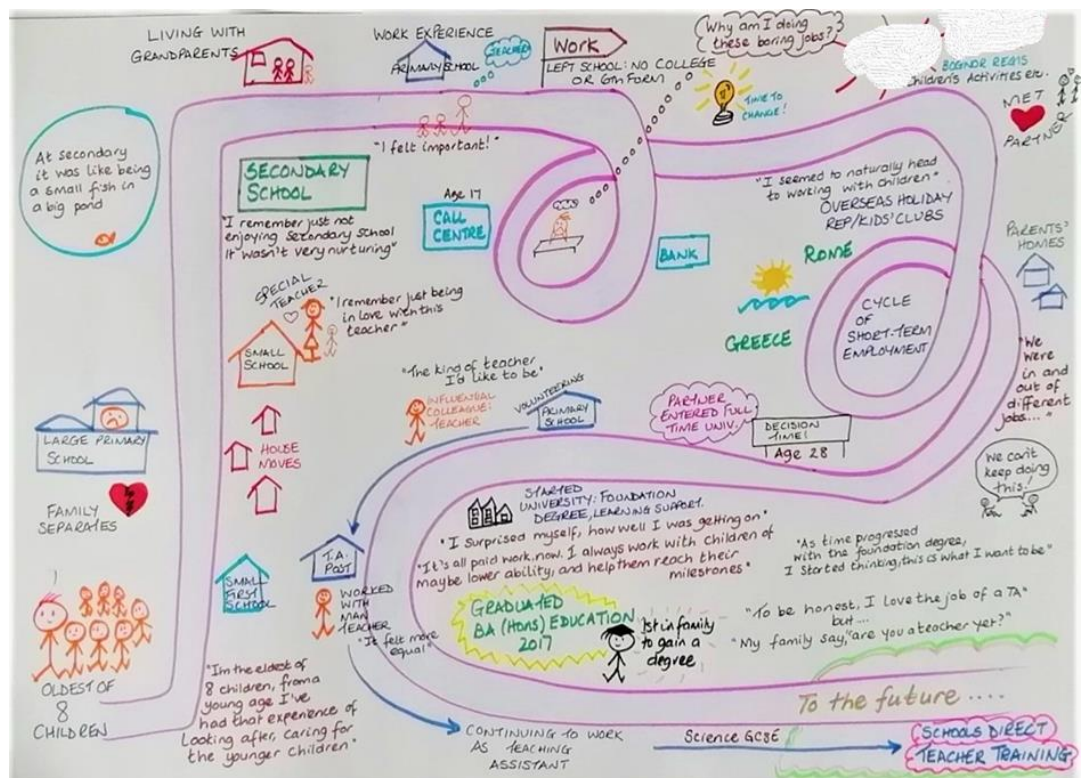 LIVING WITH
GRANDPARENTS
WORK EXPERIENCE
PRIMARY SCHOOL
TEACHER
Work
LEFT SCHOOL: NO COLLEGE
OR 6TH FORM
Why am I doing
these boring jobs?
TIME TO
CHANGE!
BOGNOR REGIS
Children's Activities etc.
MET
PARTNER
At secondary
it was like being
a small fish in
a big pond
"I felt important!"
SECONDARY
SCHOOL
"I remember just not
enjoying secondary school
it wasn't very nurturing"
Age 17
CALL
CENTRE
BANK
"I seemed to naturally head
to working with children"
OVERSEAS HOLIDAY
REP/KIDS' CLUBS
ROME
GREECE
CYCLE
OF
SHORT-TERM
EMPLOYMENT
PARENTS'
HOMES
"We
were
in and
out of
different
jobs...."
We can't
keep doing
this!
SPECIAL
TEACHER
"I remember just being
in love with this
teacher"
SMALL
SCHOOL
"The kind of teacher
I'd like to be"
INFLUENTIAL
COLLEAGUE:
TEACHER
VOLUNTEERING
PRIMARY
SCHOOL
PARTNER
ENTERED FULL
TIME UNIV.
DECISION
TIME!
Age 28
LARGE PRIMARY
SCHOOL
HOUSE
MOVES
FAMILY
SEPARATES
STARTED
UNIVERSITY: FOUNDATION
DEGREE, LEARNING SUPPORT.
"I surprised myself, how well I was getting on"
"It's all paid work now. I always work with children of
maybe lower ability, and help them reach their
milestones"
"As time progressed
with the foundation degree,
I started thinking, this is what I want to be"
SMALL FIRST
SCHOOL
T.A.
POST
WORKED
WITH
MAN
TEACHER
"It felt more
equal"
GRADUATED
BA (Hons) EDUCATION
2017
1st in family
to gain a
degree
"To be honest, I love the job of a TA"
but....
"My family say, "are you a teacher yet?"
OLDEST OF
8
CHILDREN
"I'm the eldest of
8 children, from a
young age I've
had that experience of
Looking after, caring for
the younger children"
To the future ....
CONTINUING TO WORK
AS TEACHING
ASSISTANT
Science GCSE
SCHOOLS DIRECT
TEACHER TRAINING